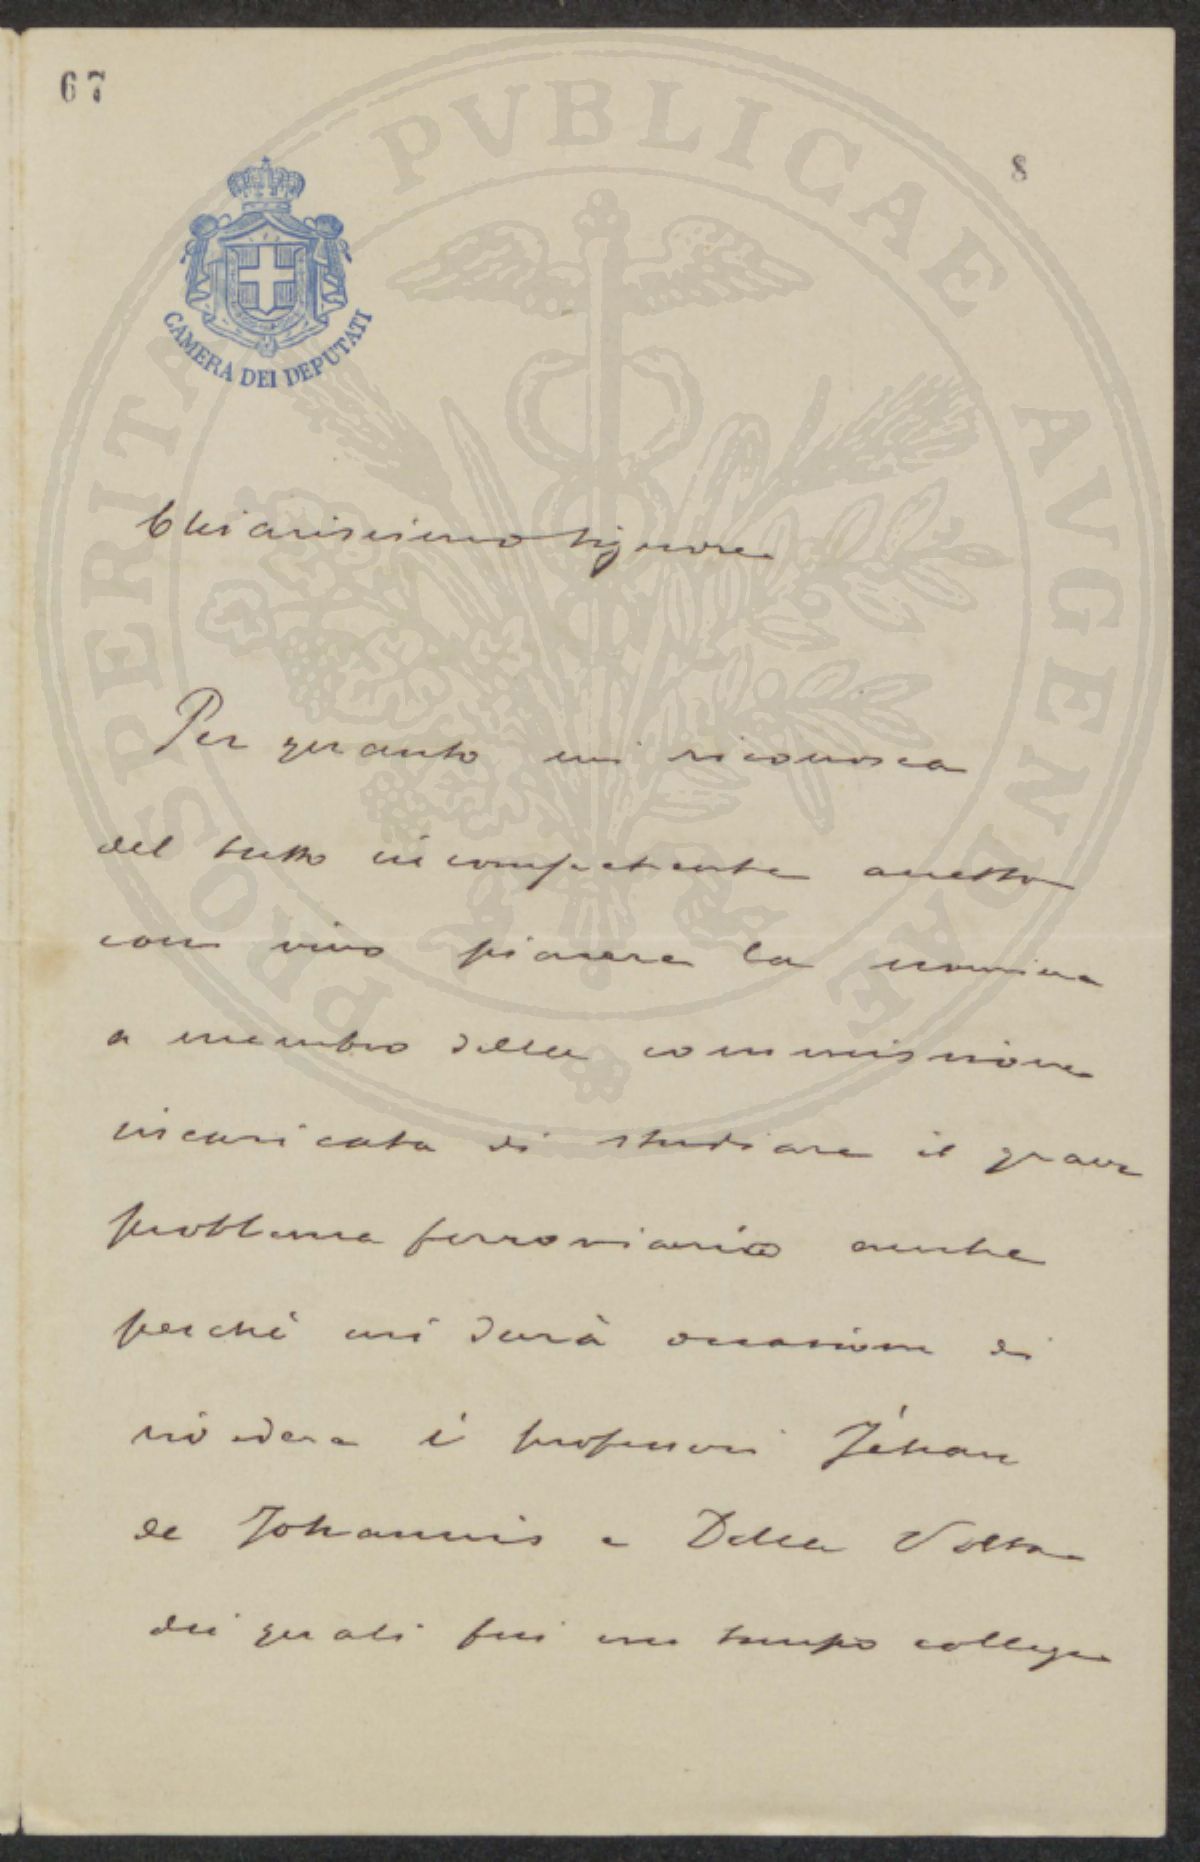 67
8
CAMERA DEI DEPUTATI
PROSPERITATI PVBLICAE AVGENDAE
Chiarissimo Signore
Per quanto mi riconosca
del tutto incompetente accetto
con vivo piacere la nomina
a membro della commissione
incaricata di studiare il grave
problema ferroviario anche
perché mi darà occasione di
rivedere i professori Jéhan
de Johannis e Della Volta
dei quali fui un tempo collega